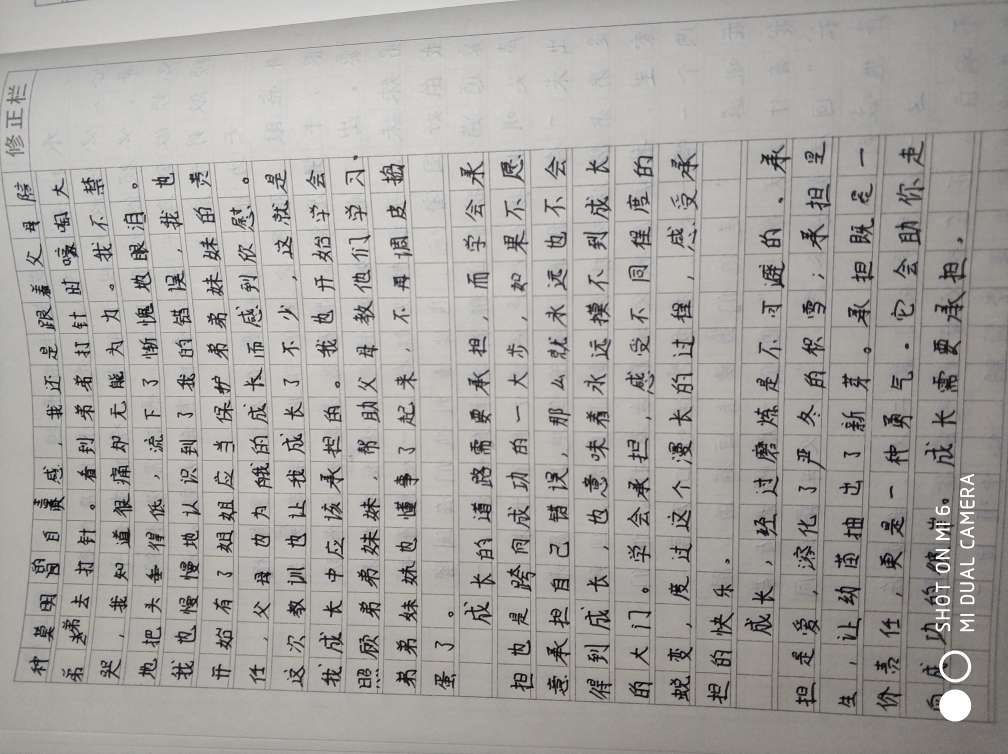 修正栏
种莫明的自责感，我还是跟着父母陪
弟弟去打针。看到弟弟打针时嚎啕大
哭，我知道很痛却无能为。我不禁
地把头垂得低，流下了惭愧地眼泪。
我也慢慢地认识到了我的错误，我也
开始有了姐姐应当保护弟弟妹妹的责
任，父母也为我的成长而感到欣慰。
这次教训也让我成长了不少，这就是
我成长中应该承担的。我也开始学会
照顾弟弟妹妹，帮助父母教他们学习。
弟弟妹妹也懂事了起来，不再调皮捣
蛋了。
成长的道路需要承担，而学会承
担也是跨向成功的一大步，如果不愿
意承担自己错误，那么就永远也不会
得到成长，也意味着永远摸不到成长
的大门。学会承担，感受不同程度的
蜕变，度过这个漫长的过程，感受承
担的快乐。
成长，经过磨炼是不可避的，承
担是爱，溶化了严冬的积雪；承担是
生，让幼苗抽出了新芽。承担既是一
价责任，更是一种勇气。它会助你走
向成功的彼岸。成长需要承担。
SHOT ON MI 6
MI DUAL CAMERA